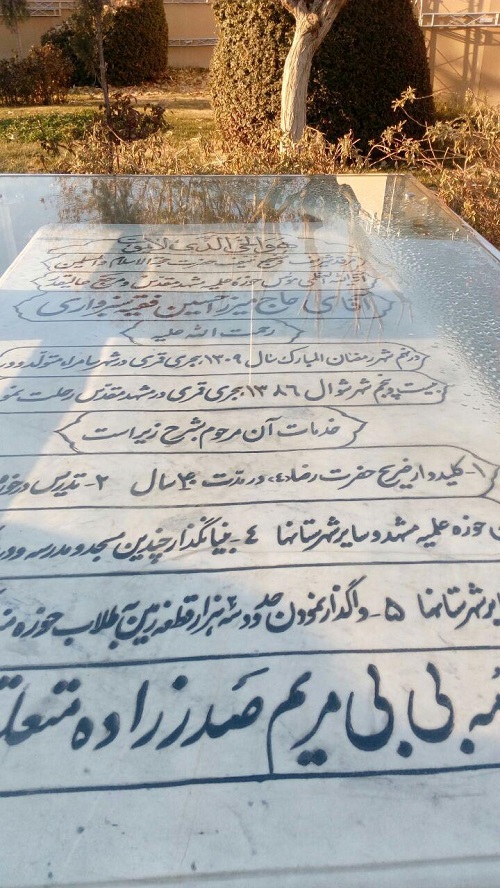 هوالحی الذی لایموت
حضرت حجة الاسلام والمسلمین
آقای حاج میرزا حسین فقیه سبزواری
رحمت الله علیه
در پنجم شهر رمضان المبارک سال ۱۳۰۹ هجری قمری در شهر سامراء متولد و در
بیست و پنجم شهر شوال ۱۳۸۶ هجری قمری در مشهد مقدس رحلت نمو
خدمات آن مرحوم بشرح زیر است
۱- کلیددار ضریح حضرت رضا (ع) در مدت ۴۰ سال ۲- تدریس درخو
حوزه علمیه مشهد و سایر شهرستانها ۴- بنیانگذار چندین مسجد و مدرسه وور
یر شهرستانها ۵- واگذار نمودن حدود هزار قطعه زمین به طلاب حوزه
مه بی بی مریم صدرزاده متعلق